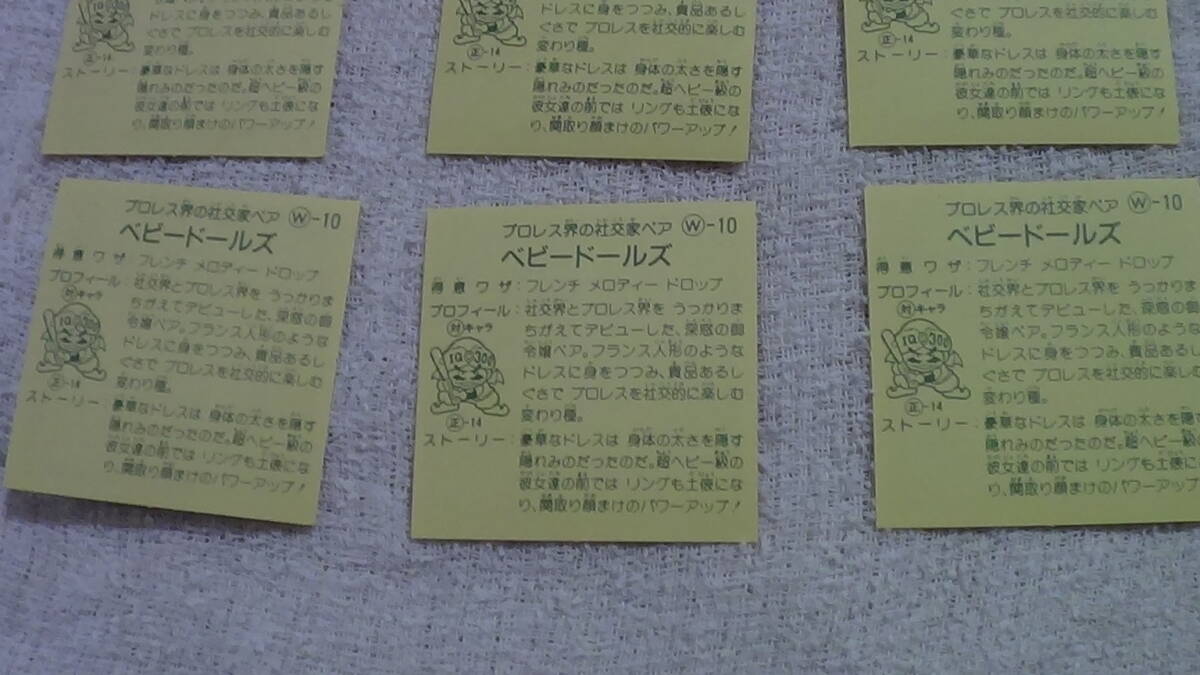 ドレスに身をつつみ、貴品あるし
ぐさで プロレスを社交的に楽しむ
変わり種。
正-14
ストーリー:豪華なドレスは 身体の太さを隠す
隠れみのだったのだ。超ヘビー級の
彼女達の前では リングも土俵にな
り、関取り顔まけのパワーアップ!
ドレスに身をつつみ、貴品あるし
ぐさで プロレスを社交的に楽しむ
変わり種。
正-14
ストーリー:豪華なドレスは 身体の太さを隠す
隠れみのだったのだ。超ヘビー級の
彼女達の前では リングも土俵にな
り、関取り顔まけのパワーアップ!
ぐさで プロレスを社交的に楽しむ
変わり種。
正-14
ストーリー:豪華なドレスは 身体の太さを隠す
隠れみのだったのだ。超ヘビー級の
彼女達の前では リングも土俵にな
り、関取り顔まけのパワーアップ!
プロレス界の社交家ペア W-10
ベビードールズ
得意ワザ:フレンチ メロディー ドロップ
プロフィール:社交界とプロレス界を うっかりま
ちがえてデビューした、深窓の御
令嬢ペア。フランス人形のような
ドレスに身をつつみ、貴品あるし
ぐさで プロレスを社交的に楽しむ
変わり種。
対キャラ
IQ 300
正-14
ストーリー:豪華なドレスは 身体の太さを隠す
隠れみのだったのだ。超ヘビー級の
彼女達の前では リングも土俵にな
り、関取り顔まけのパワーアップ!
プロレス界の社交家ペア W-10
ベビードールズ
得意ワザ:フレンチ メロディー ドロップ
プロフィール:社交界とプロレス界を うっかりま
ちがえてデビューした、深窓の御
令嬢ペア。フランス人形のような
ドレスに身をつつみ、貴品あるし
ぐさで プロレスを社交的に楽しむ
変わり種。
対キャラ
IQ 300
正-14
ストーリー:豪華なドレスは 身体の太さを隠す
隠れみのだったのだ。超ヘビー級の
彼女達の前では リングも土俵にな
り、関取り顔まけのパワーアップ!
プロレス界の社交家ペア W-10
ベビードールズ
得意ワザ:フレンチ メロディー ドロップ
プロフィール:社交界とプロレス界を うっかりま
ちがえてデビューした、深窓の
令嬢ペア。フランス人形のような
ドレスに身をつつみ、貴品あるし
ぐさで プロレスを社交的に楽しむ
変わり種。
対キャラ
IQ 300
正-14
ストーリー:豪華なドレスは 身体の太さを隠
隠れみのだったのだ。超ヘビー級
彼女達の前では リングも土俵にな
り、関取り顔まけのパワーアップ